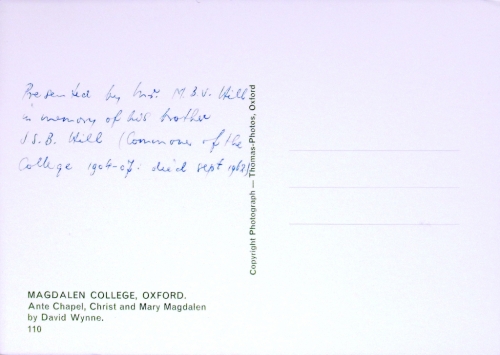 Presented by Mr. M.B.V. Hill
in memory of his brother
J.S.B. Hill (Commoner of the
College 1904-07: died sept
Copyright Photograph — Thomas-Photos, Oxford
MAGDALEN COLLEGE, OXFORD.
Ante Chapel, Christ and Mary Magdalen
by David Wynne.
110